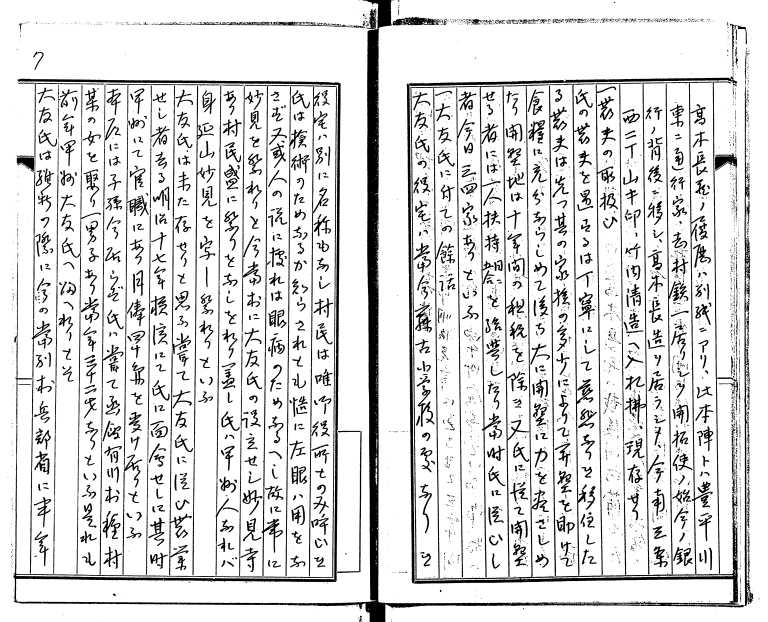 高木長蔵ノ履歴ハ別紙ニアリ、此本陣トハ豊平川
東ニ通行家、志村鉄一居リシヲ開拓使ノ始今ノ銀
行ノ背後ニ移シ、高木長造ヲ居ラシメ、今南三条
西二丁山キ印、竹内清造ヘ入れ払、現存せり
一農夫の取扱ひ
氏の農夫を遇するは丁寧にして慈悲ありと移住した
る農夫は先つ其の家族の多少によりて開墾を助けて
食糧に充分ならしめて後ち大に開墾に力を尽さしめ
たり開墾地は十年間の租税を除き又氏に従て開墾
せる者には一人扶持を給與したり当時氏に従ひし
者今日三四家ありといふ
一大友氏に付ての餘話
大友氏の役宅ハ当今蘇古小学校の処なりと
役宅ハ別に名称もなし村民は唯御役所とのみ呼ひと
氏は検術のためなるか知らされとも慥に左眼ハ用をな
さず又或人の説に拠れは眼病のためなるへし故に常に
妙見を祭れりと今当村に大友氏の設立せし妙見寺
あり村民盛に祭りをなしをれり蓋し氏ハ甲州人なれバ
身延山妙見を字し祭れりといふ
大友氏は未た存せりと思ふ嘗て大友氏に従ひ農業
せし者ある明治十七年横浜にて氏に面会せしに其時
甲州にて官職にあり月俸四十円を受け居りといふ
本居には子孫今居らず氏は嘗て亜鉛有川村種村
某の女を娶り一男子あり当年三十二才なりといふ是れも
前年甲州大友氏へ帰へれりとそ
大友氏は維新の際に今の当別村兵部省に半年
7